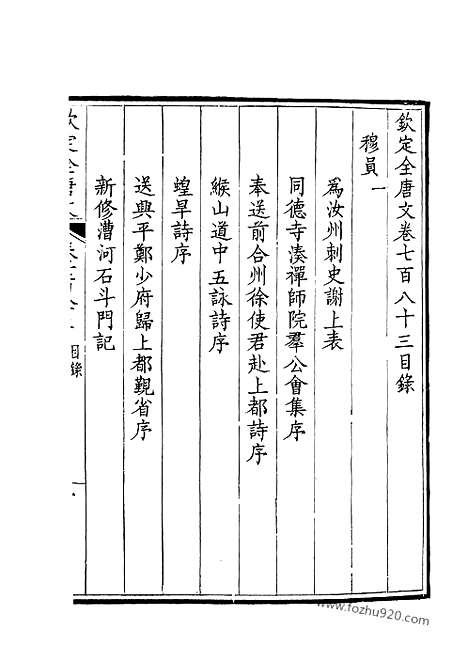 欽定全唐文卷七百八十三目錄
穆員一
爲汝州刺史謝上表
同德寺湊禪師院羣公會集序
奉送前合州徐使君赴上都詩序
緱山道中五詠詩序
蝗旱詩序
送興平鄭少府歸上都覲省序
新修漕河石斗門記
目錄
www.fozhu920.com